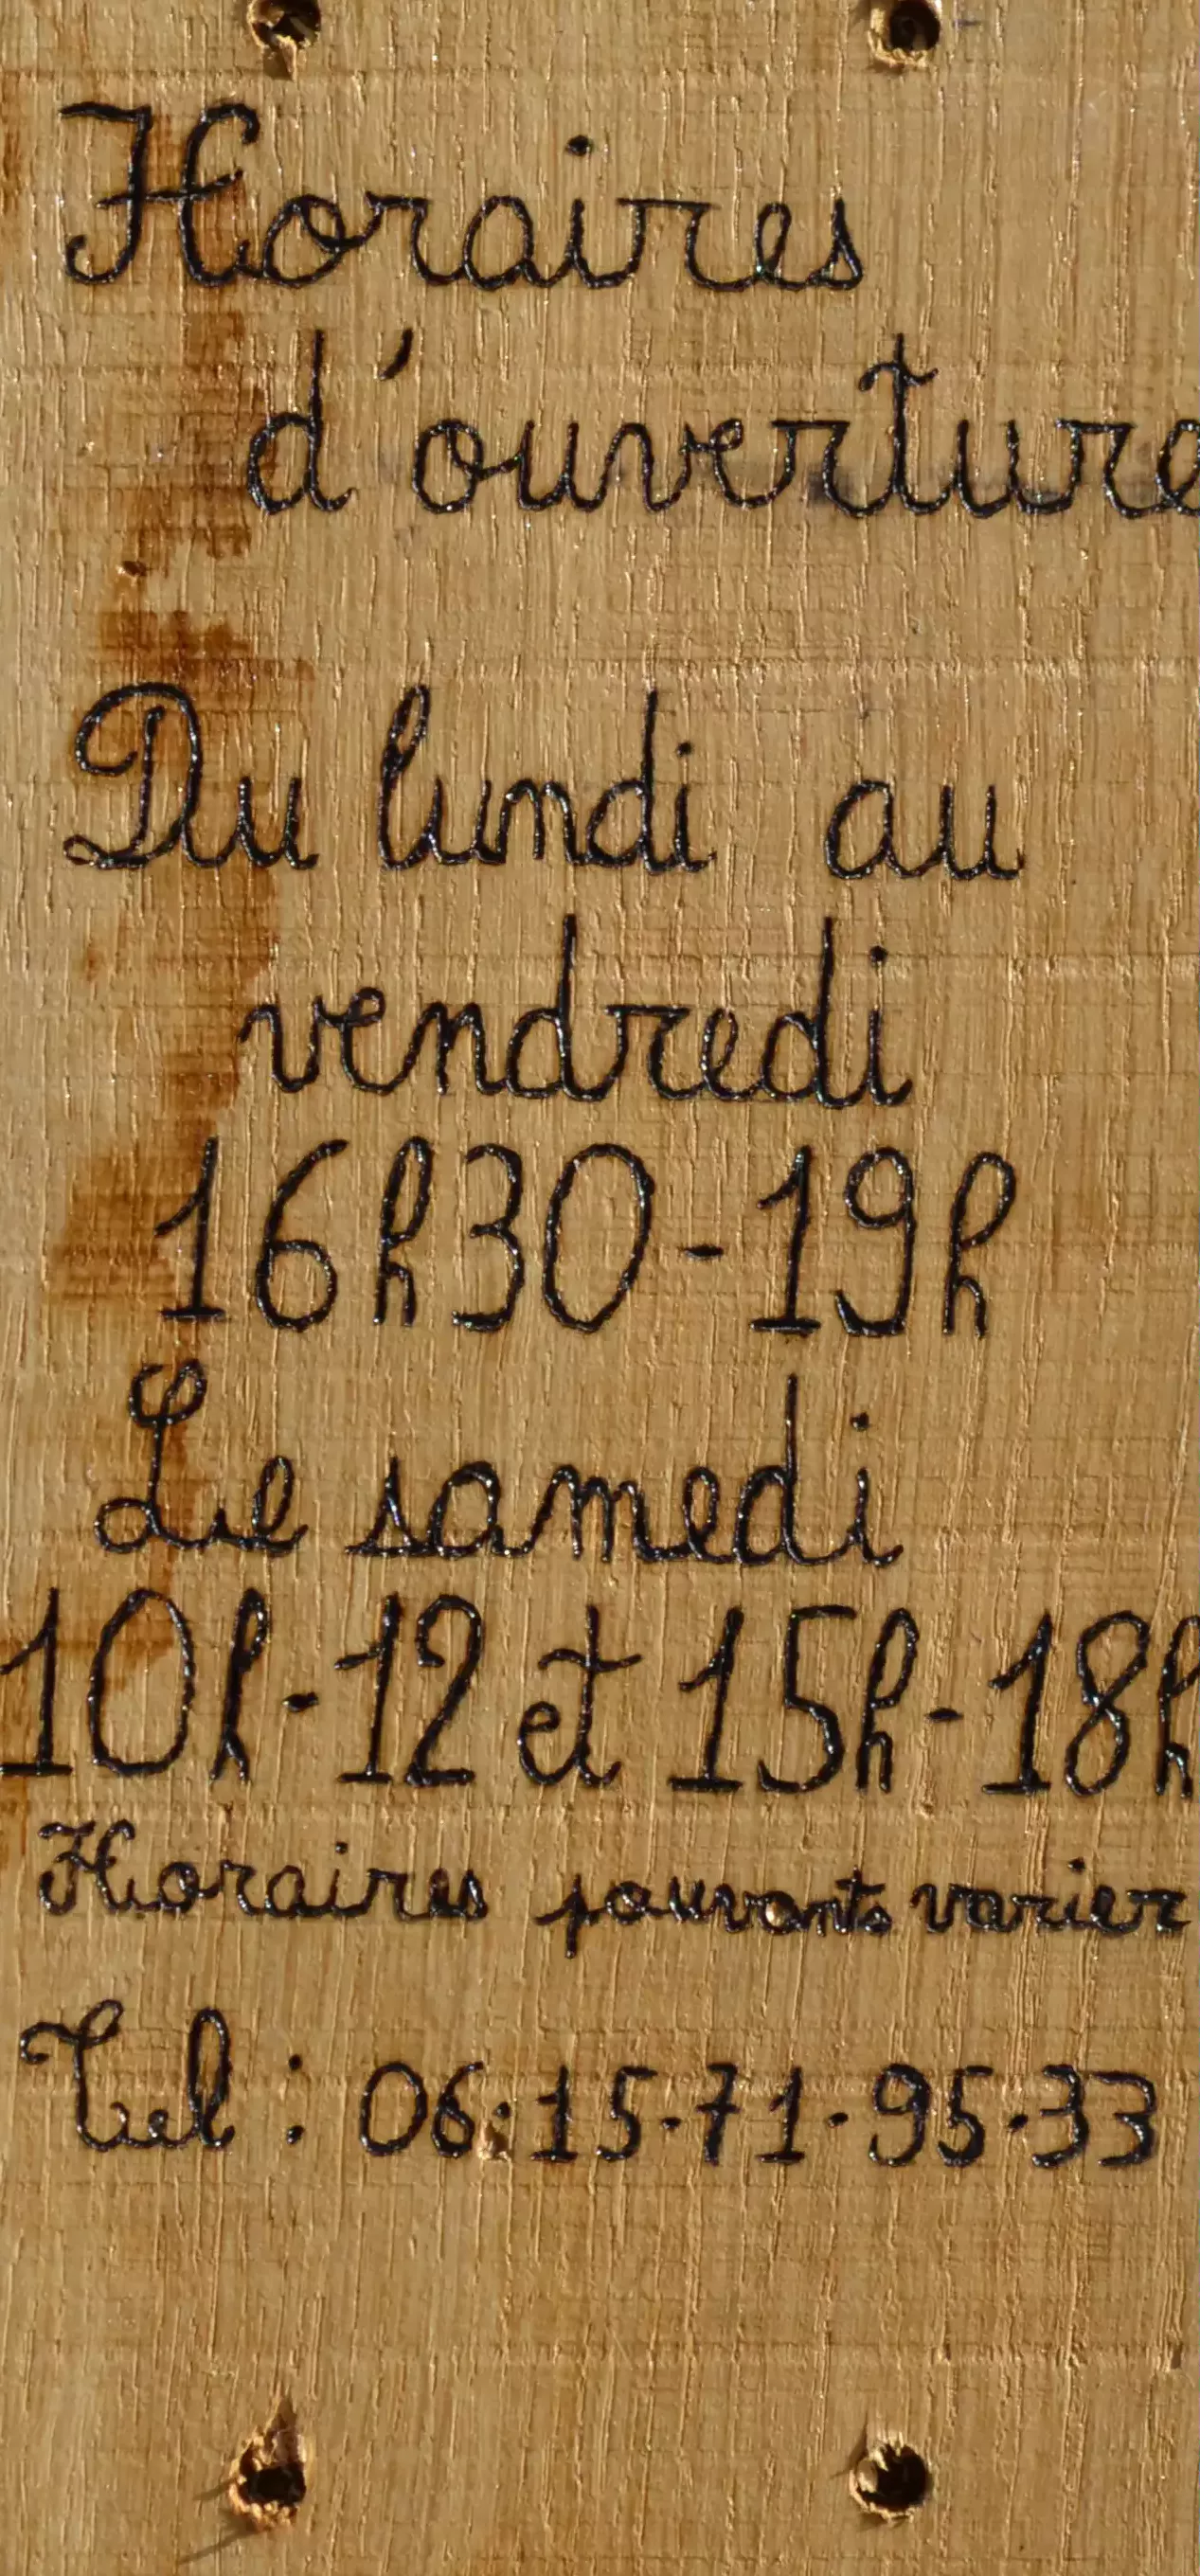 Horaires
d'ouverture
Du lundi au
vendredi
16h30-19h
Le samedi
10h-12 et 15h-18h
Horaires pouvants varier
Tel : 06·15·71·95·33